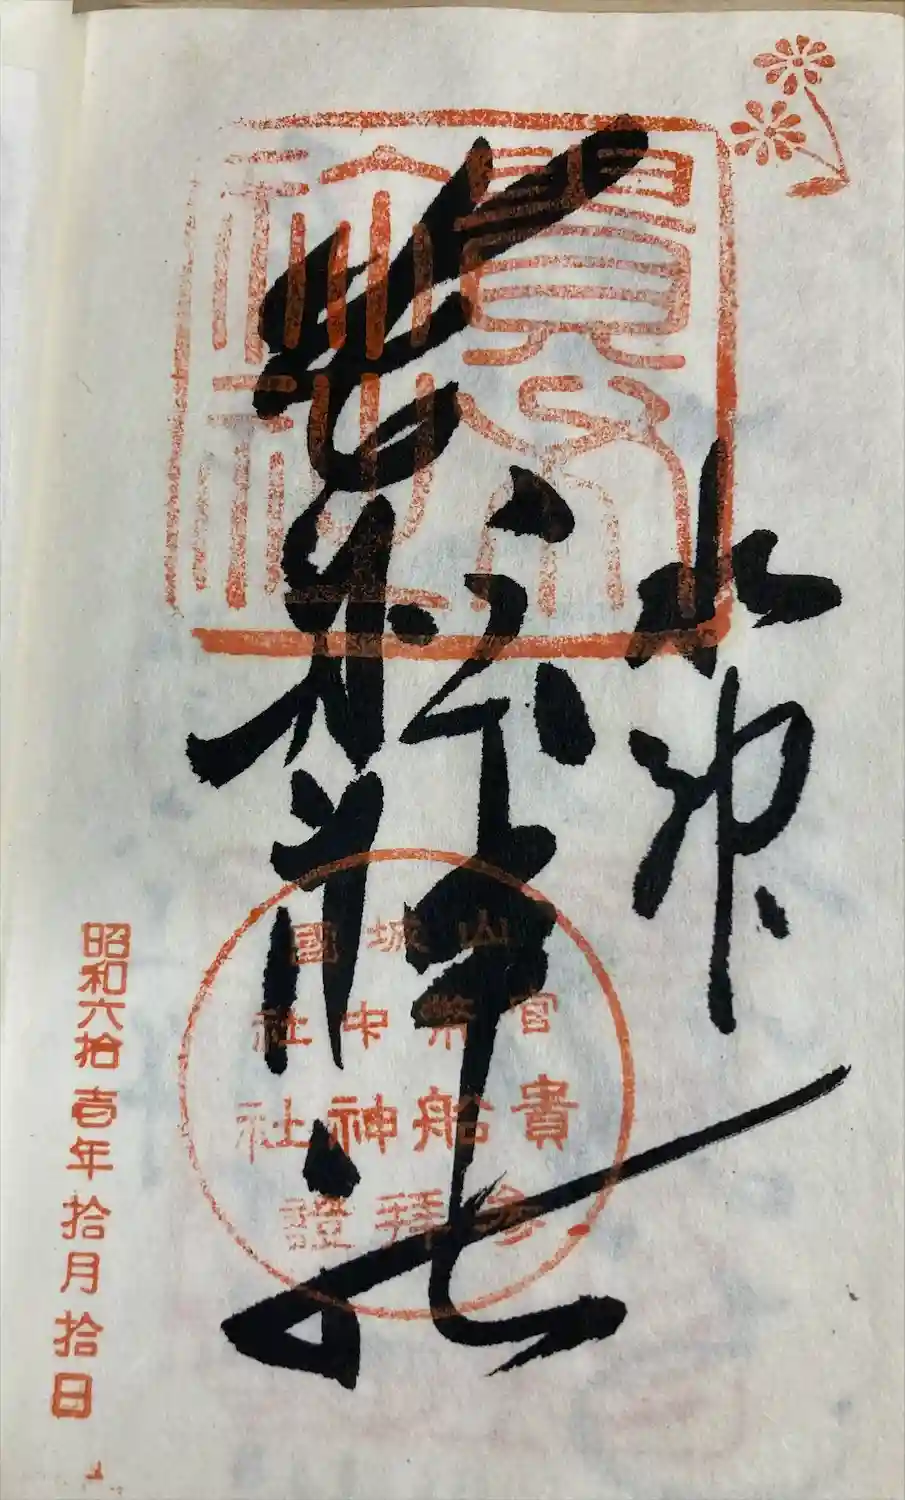 水神
貴船神社
山城國
官幣中社
貴船神社
参拜證
昭和六拾壱年拾月拾日